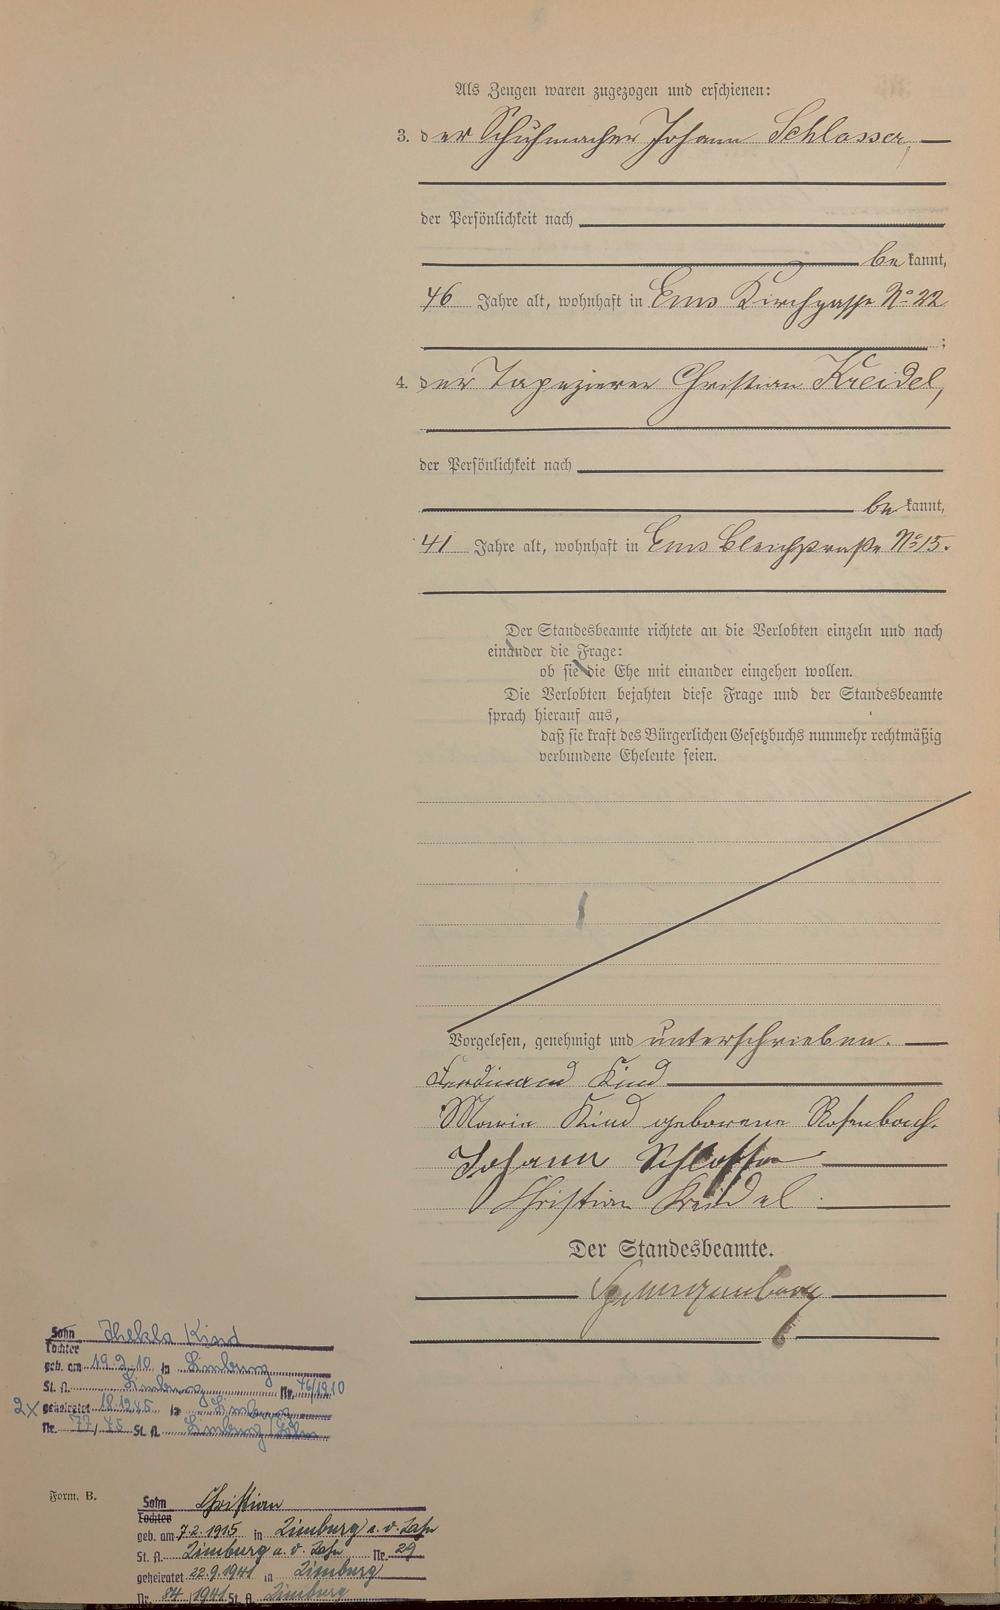 Als Zeugen waren zugezogen und erschienen:
3. der Schuhmacher Johann Schlosser,
der Persönlichkeit nach
be kannt,
46 Jahre alt, wohnhaft in Ems Kirchgasse No 22
;
4. der Tapezierer Christian Kreidel,
der Persönlichkeit nach
be kannt,
41 Jahre alt, wohnhaft in Ems Bleichstraße No 15.
Der Standesbeamte richtete an die Verlobten einzeln und nach
einander die Frage:
ob sie die Ehe mit einander eingehen wollen.
Die Verlobten bejahten diese Frage und der Standesbeamte
sprach hierauf aus,
daß sie kraft des Bürgerlichen Gesetzbuchs nunmehr rechtmäßig
verbundene Eheleute seien.
Vorgelesen, genehmigt und unterschrieben.
Ferdinand Kind
Maria Kind geborene Rosenbach.
Johann Schlosser
Christian Kreidel
Der Standesbeamte.
Sohn Thekla Kind
Tochter
geb. am 19.2.10 in Limburg
St. A. Limburg Nr. 46/1910
2x geheiratet 18.12.45 in Limburg
Nr. 77/45 St. A. Limburg/Lahn
Form. B.
Sohn Christian
Tochter
geb. am 7.2.1915 in Limburg a. d. Lahn
St. A. Limburg a. d. Lahn Nr. 29
geheiratet 22.9.1941 in Limburg
Nr. 84/1941 St. A. Limburg